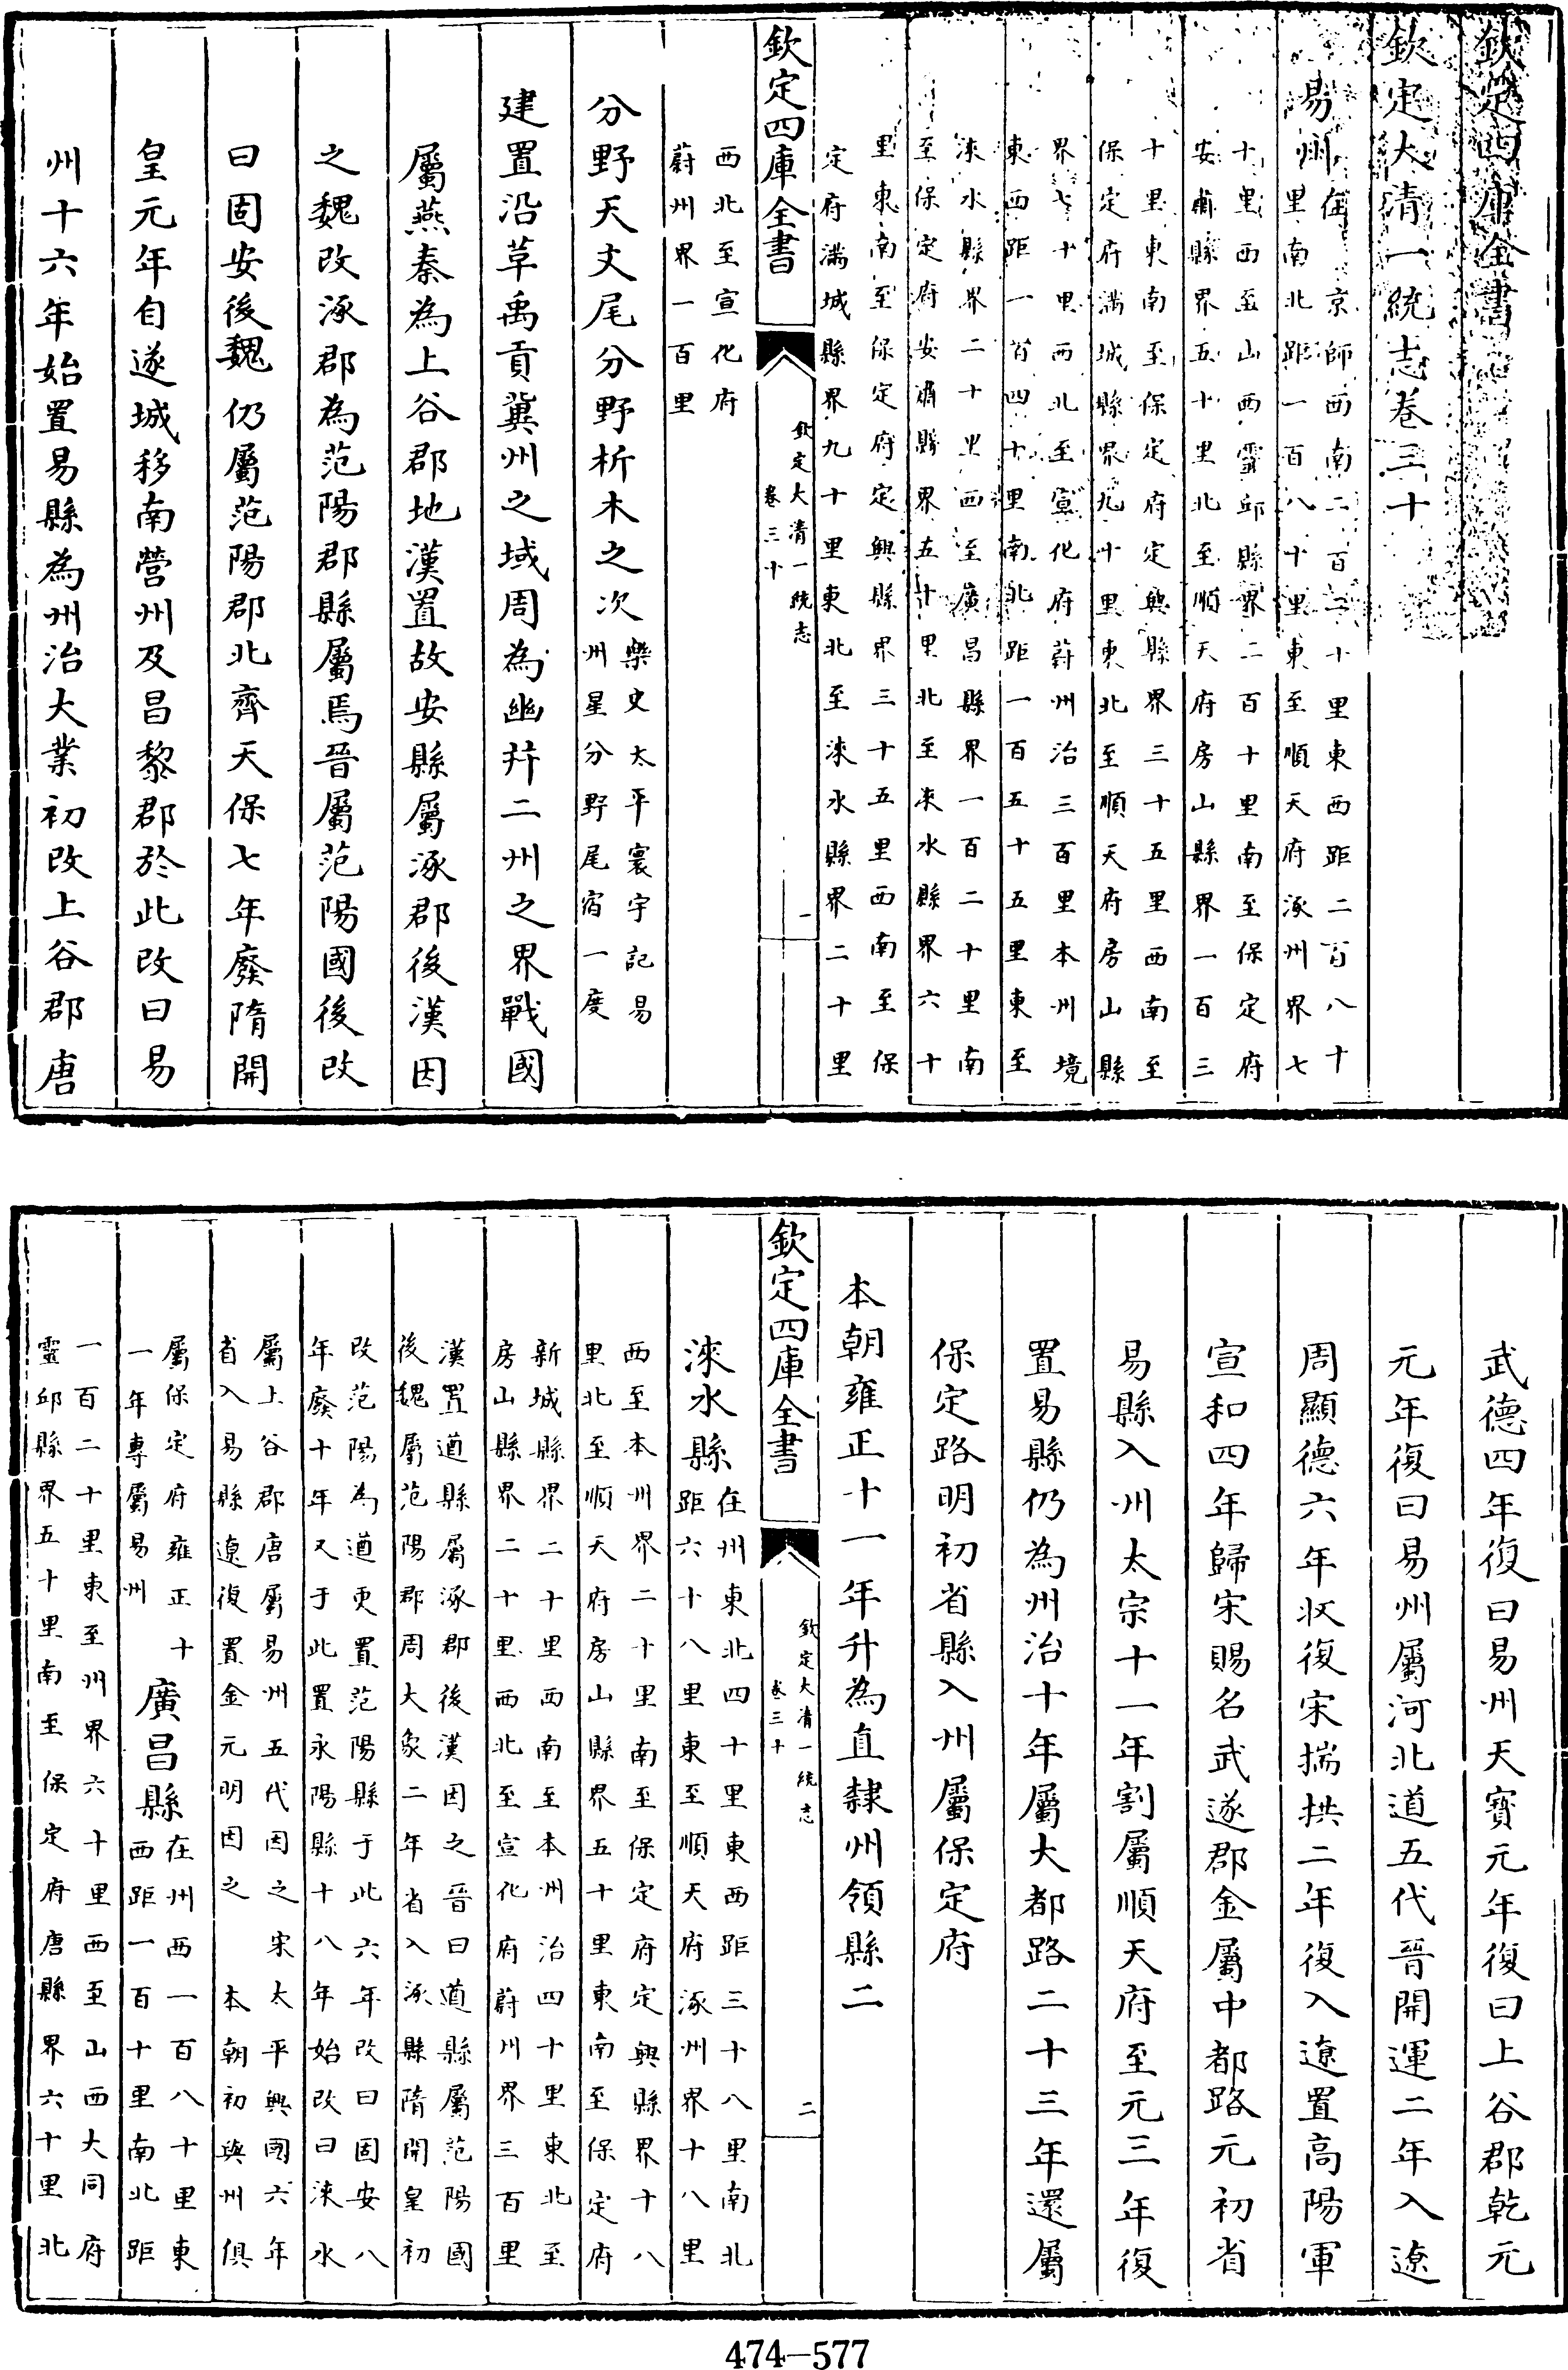 欽定四庫全書
欽定大清一統志卷三十
易州
在京師西南二百二十里東西距二百八十
里南北距一百八十里東至順天府涿州界七
十里西至山西靈邱縣界二百十里南至保定府
安肅縣界五十里北至順天府房山縣界一百三
十里東南至保定府定興縣界三十五里西南至
保定府滿城縣界九十里東北至順天府房山縣
界七十里西北至宣化府蔚州治三百里本州境
東西距一百四十里南北距一百五十五里東至
淶水縣界二十里西至廣昌縣界一百二十里南
至保定府安肅縣界五十里北至淶水縣界六十
里東南至保定府定興縣界三十五里西南至保
定府滿城縣界九十里東北至淶水縣界二十里
欽定四庫全書
欽定大清一統志
卷三十
一
西北至宣化府
蔚州界一百里
分野天文尾分野析木之次
樂史太平寰宇記易
州星分野尾宿一度
建置沿革禹貢冀州之域周為幽并二州之界戰國
屬燕秦為上谷郡地漢置故安縣屬涿郡後漢因
之魏改涿郡為范陽郡縣屬焉晉屬范陽國後改
曰固安後魏仍屬范陽郡北齊天保七年廢隋開
皇元年自遂城移南營州及昌黎郡於此改曰易
州十六年始置易縣為州治大業初改上谷郡唐
武德四年復曰易州天寶元年復曰上谷郡乾元
元年復曰易州屬河北道五代晉開運二年入遼
周顯德六年收復宋㨷拱二年復入遼置高陽軍
宣和四年歸宋賜名武遂郡金屬中都路元初省
易縣入州太宗十一年割屬順天府至元三年復
置易縣仍為州治十年屬大都路二十三年還屬
保定路明初省縣入州屬保定府
本朝雍正十一年升為直隸州領縣二
欽定四庫全書
欽定大清一統志
卷三十
二
淶水縣
在州東北四十里東西距三十八里南北
距六十八里東至順天府涿州界十八里
西至本州界二十里南至保定府定興縣界十八
里北至順天府房山縣界五十里東南至保定府
新城縣界二十里西南至本州治四十里東北至
房山縣界二十里西北至宣化府蔚州界三百里
漢置遒縣屬涿郡後漢因之晉曰遒縣屬范陽國
後魏屬范陽郡周大象二年省入涿縣隋開皇初
改范陽為遒更置范陽縣于此六年改曰固安八
年廢十年又于此置永陽縣十八年始改曰淶水
屬上谷郡唐屬易州五代因之宋太平興國六年
省入易縣遼復置金元明因之 本朝初與州俱
屬保定府雍正十
一年專屬易州
廣昌縣
在州西一百八十里東
西距一百十里南北距
一百二十里東至州界六十里西至山西大同府
靈邱縣界五十里南至保定府唐縣界六十里北
474—577